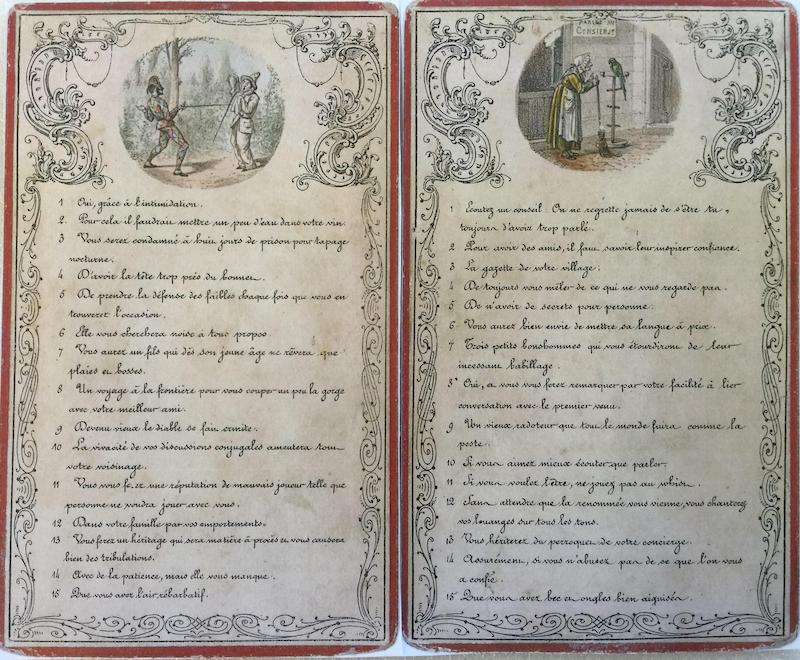 1 Oui, grâce à l'intimidation.
2. Pour cela il faudrait mettre un peu d'eau dans votre vin.
3 Vous serez condamné à huit jours de prison pour tapage
nocturne.
4 D'avoir la tête trop près du bonnet.
5 De prendre la défense des faibles chaque fois que vous en
trouverez l'occasion.
6 Elle vous cherchera noise à tous propos.
7 Vous aurez un fils qui dès son jeune âge ne rêvera que
plaies et bosses.
8 Un voyage à la frontière pour vous couper un peu la gorge
avec votre meilleur ami.
9 Devenu vieux le diable se fait ermite.
10 La vivacité de vos discussions conjugales ameutera tout
votre voisinage.
11 Vous vous ferez une réputation de mauvais joueur telle que
personne ne voudra jouer avec vous.
12 Dans votre famille par vos emportements.
13 Vous ferez un héritage qui sera matière à procès et vous causera
bien des tribulations.
14 Avec de la patience, mais elle vous manque.
15 Que vous avez l'air rébarbatif.
PARLEZ AU
CONSIERGE
1 Ecoutez un conseil: On ne regrette jamais de s'être tu,
toujours d'avoir trop parlé.
2 Pour avoir des amis, il faut savoir leur inspirer confiance.
3 La gazette de votre village.
4 De toujours vous mêler de ce qui ne vous regarde pas.
5 De n'avoir de secrets pour personne.
6 Vous aurez bien envie de mettre sa langue à prix.
7 Trois petits bonshommes qui vous étourdiront de leur
incessant babillage.
8 Oui, et vous vous ferez remarquer par votre facilité à lier
conversation avec le premier venu.
9 Un vieux radoteur que tout le monde fuira comme la
peste.
10 Si vous aimez mieux écouter que parler.
11 Si vous voulez l'être, ne jouez pas au whist.
12 Sans attendre que la renommée vous vienne, vous chanterez
vos louanges sur tous les tons.
13 Vous hériterez du perroquet de votre concierge.
14 Assurément, si vous n'abusez pas de se que l'on vous
a confié.
15 Que vous avez bec et ongles bien aiguisés.